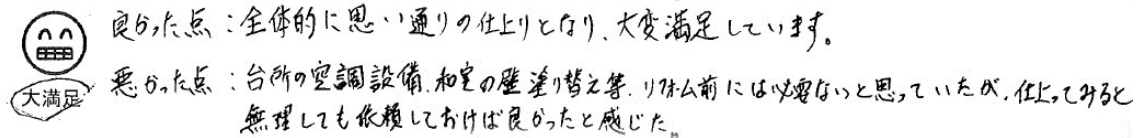 良かった点：全体的に思い通りの仕上りとなり、大変満足しています。
大満足
悪かった点：台所の空調設備、和室の壁塗り替え等、リフォーム前には必要ないと思っていたが、仕上ってみると
無理しても依頼しておけば良かったと感じた。